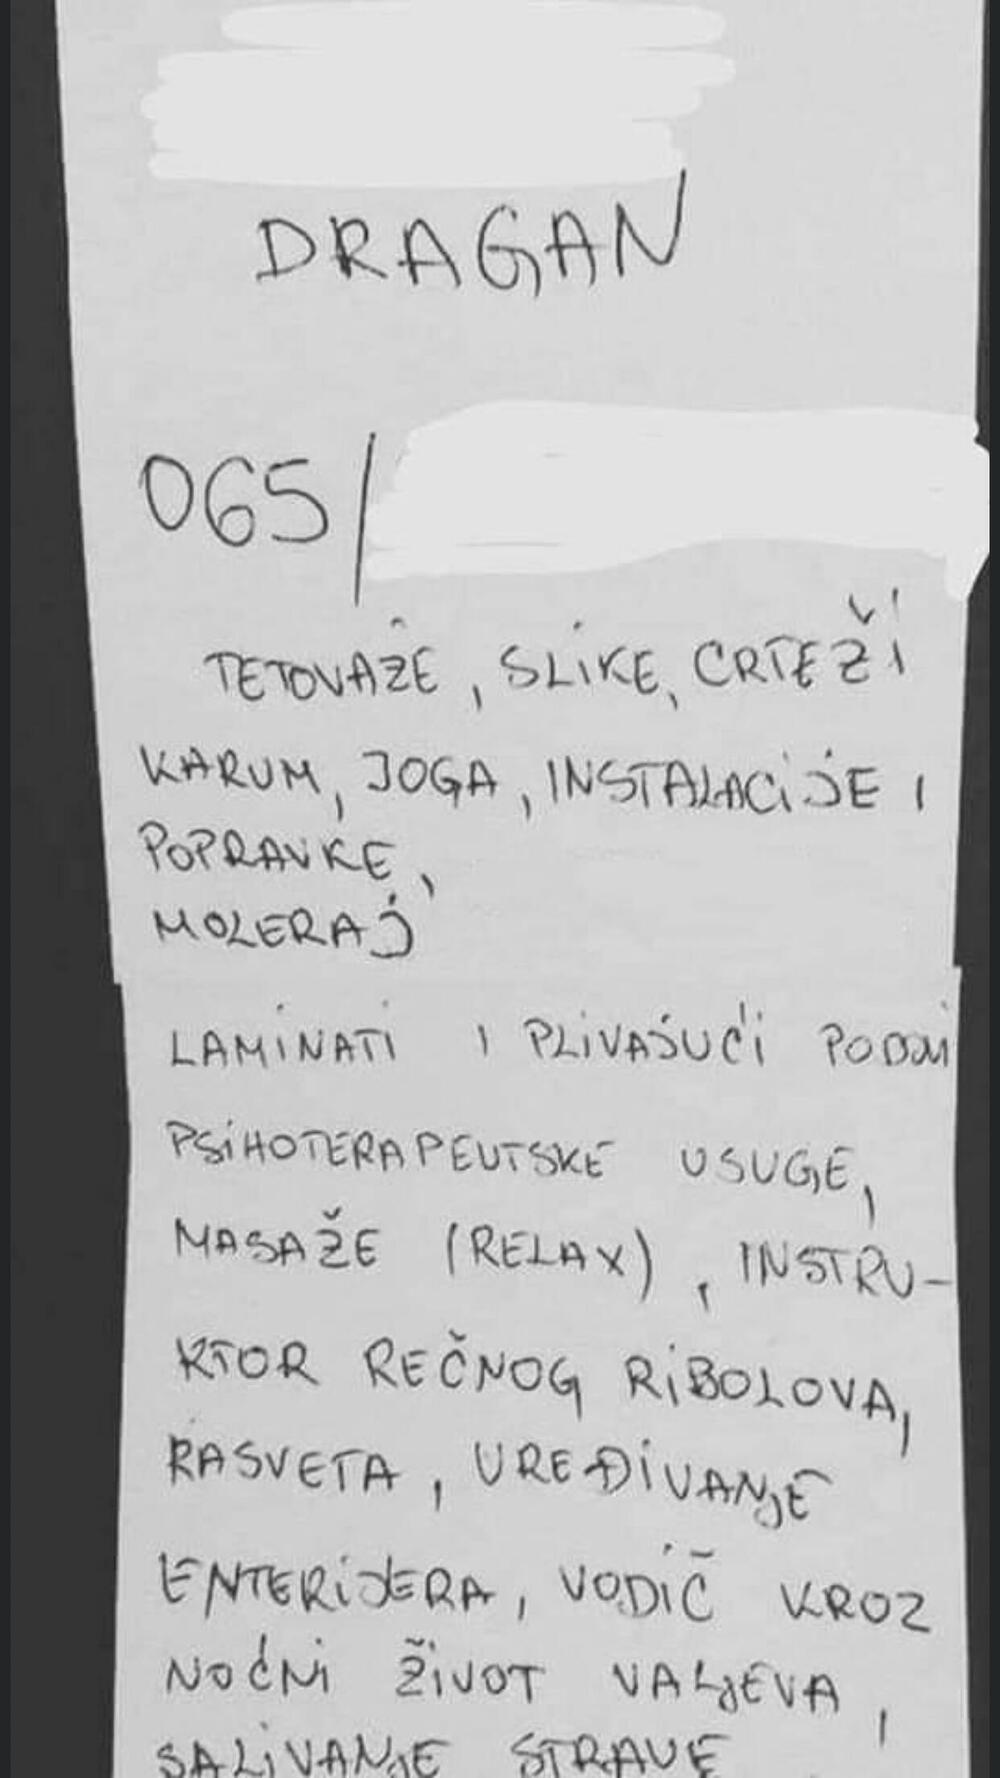 DRAGAN
065/
TETOVAŽE, SLIKE, CRTEŽI
KARUM, JOGA, INSTALACIJE I
POPRAVKE,
MOLERAJ
LAMINATI I PLIVAJUĆI PODOVI
PSIHOTERAPEUTSKE USUGE,
MASAŽE (RELAX), INSTRU-
KTOR REČNOG RIBOLOVA,
RASVETA, UREĐIVANJE
ENTERIJERA, VODIČ KROZ
NOĆNI ŽIVOT VALJEVA,
SALIVANJE STRAVE